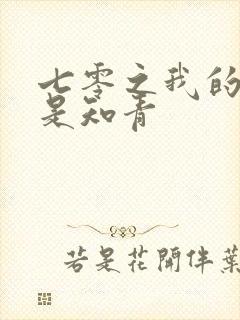 七零之我的
是知青
若是花開伴葉